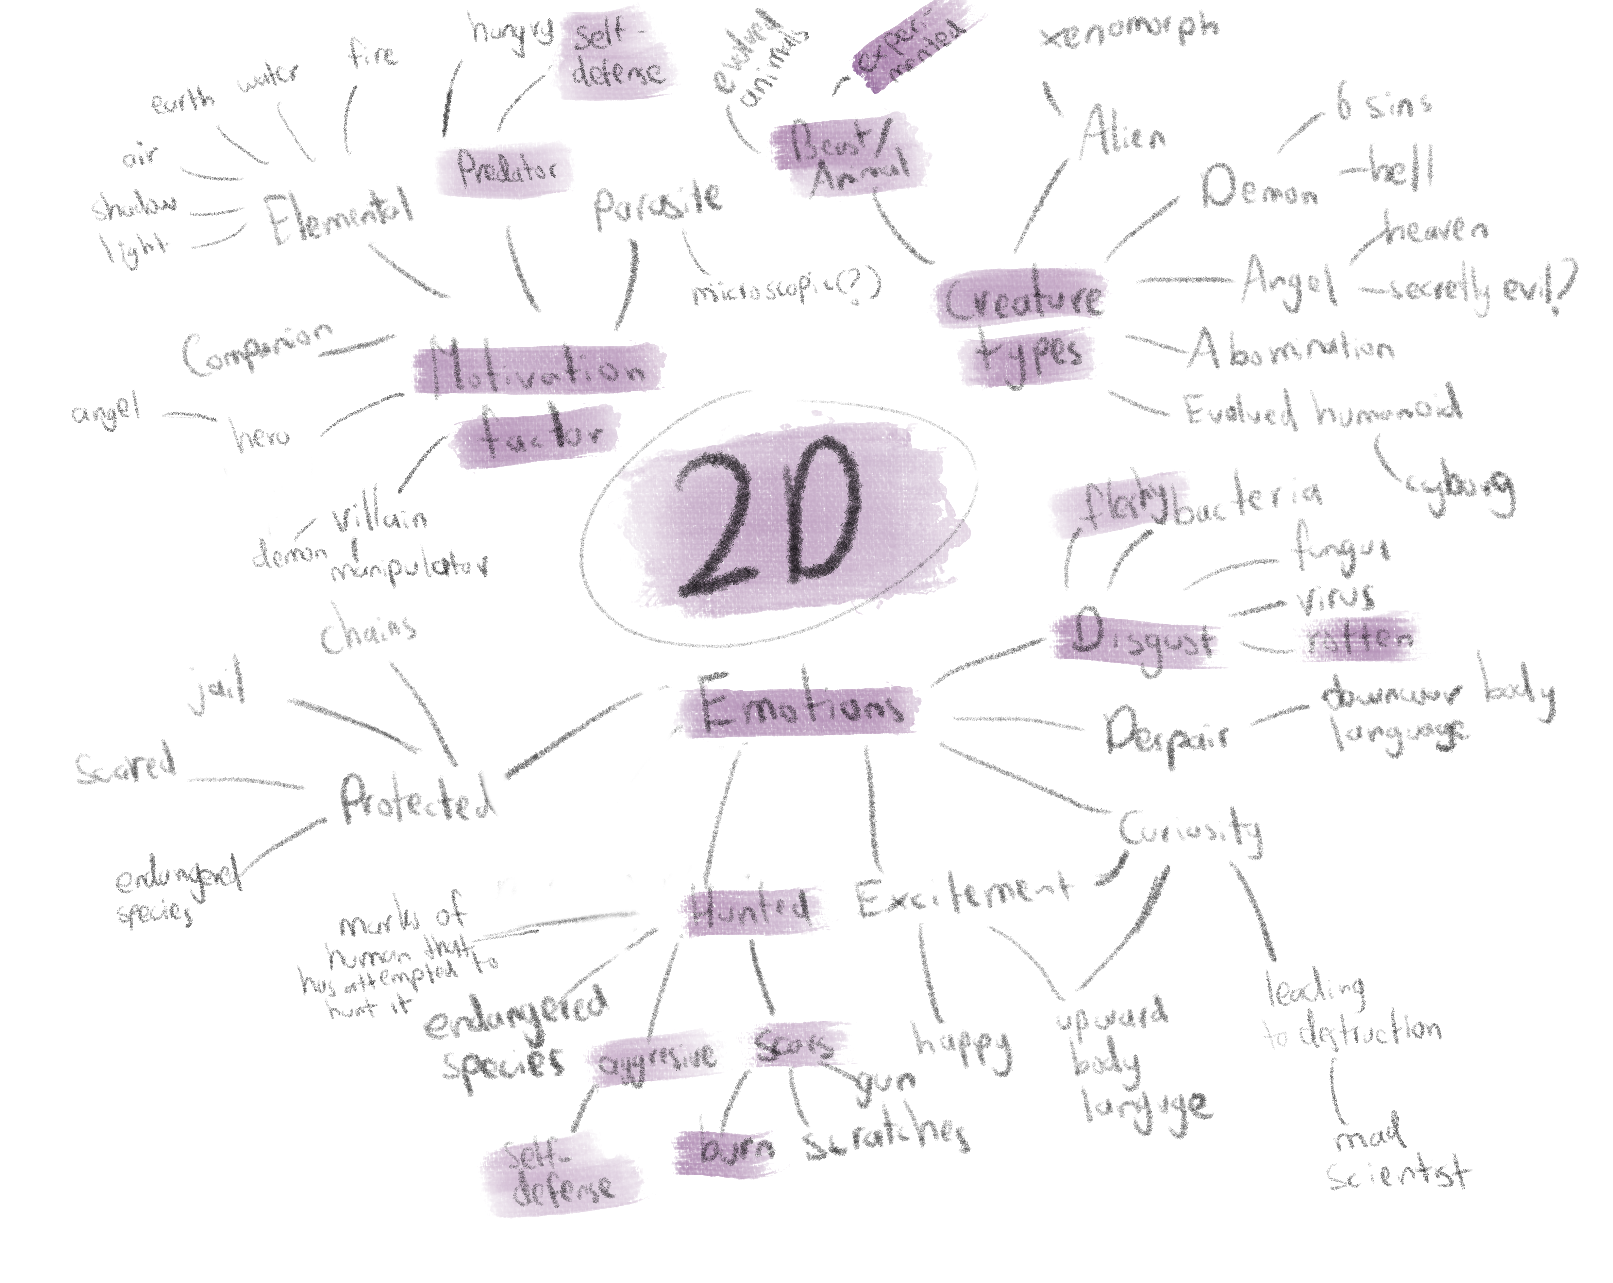 hungry
self-
defense
evolved
animals
experi-
mented
xenomorph
fire
water
earth
air
shadow
light
Elemental
Predator
Parasite
microscopic(?)
Beast/
Animal
Alien
6 sins
hell
Demon
heaven
Angel
secretly evil?
Creature
types
Abomination
Evolved humanoid
cyborg
Companion
Motivation
factor
angel
hero
villain
demon
manipulator
2D
fleshy
bacteria
fungus
virus
rotten
Disgust
Emotions
Despair
downwar body
language
Curiosity
chains
jail
Scared
Protected
endangered
species
marks of
human that
has attempted to
hunt it
Hunted
Excitement
endangered
species
aggresive
scars
gun
scratches
burn
self-
defense
happy
upward
body
languge
leading
to destruction
mad
scientst